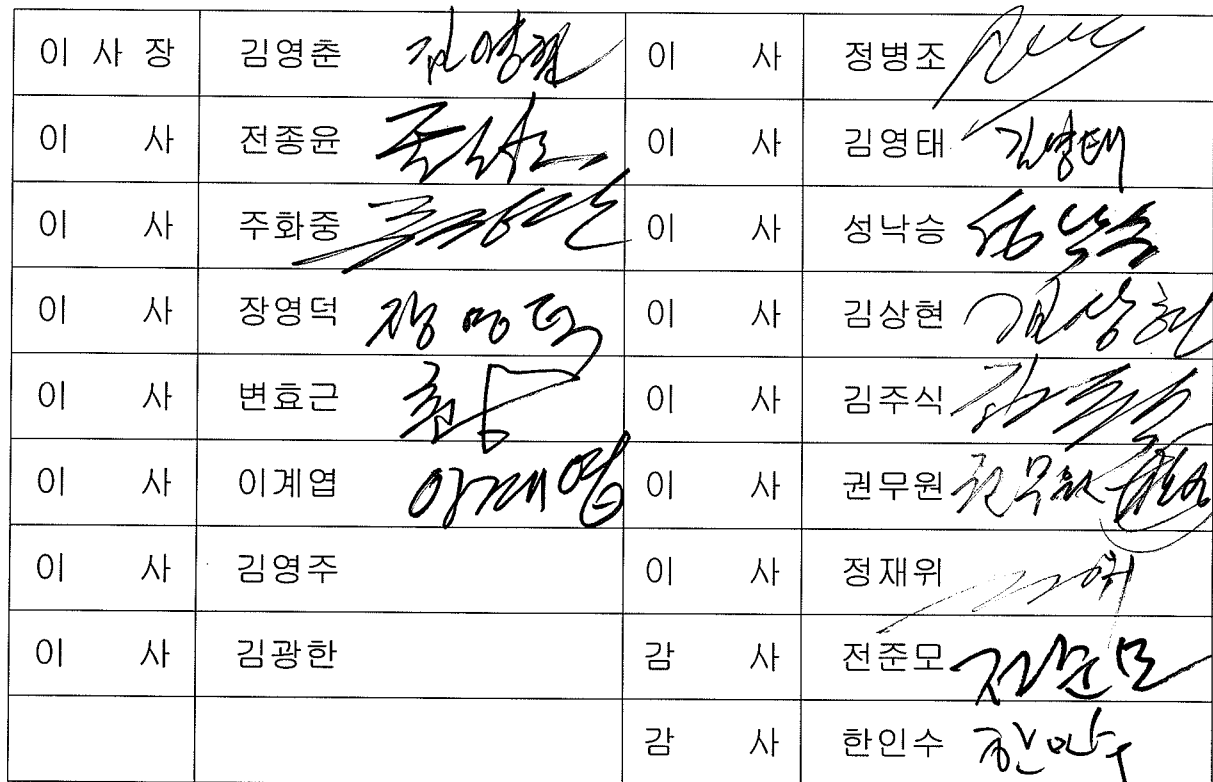 이 사 장 김영춘 이 사 정병조
이 사 전종윤 이 사 김영태 김영태
이 사 주화중 이 사 성낙승 성낙승
이 사 장영덕 장영덕 이 사 김상현 김상현
이 사 변효근 이 사 김주식
이 사 이계엽 이계엽 이 사 권무원 권무원
이 사 김영주 이 사 정재위
이 사 김광한 감 사 전준모 전준모
감 사 한인수 한인수